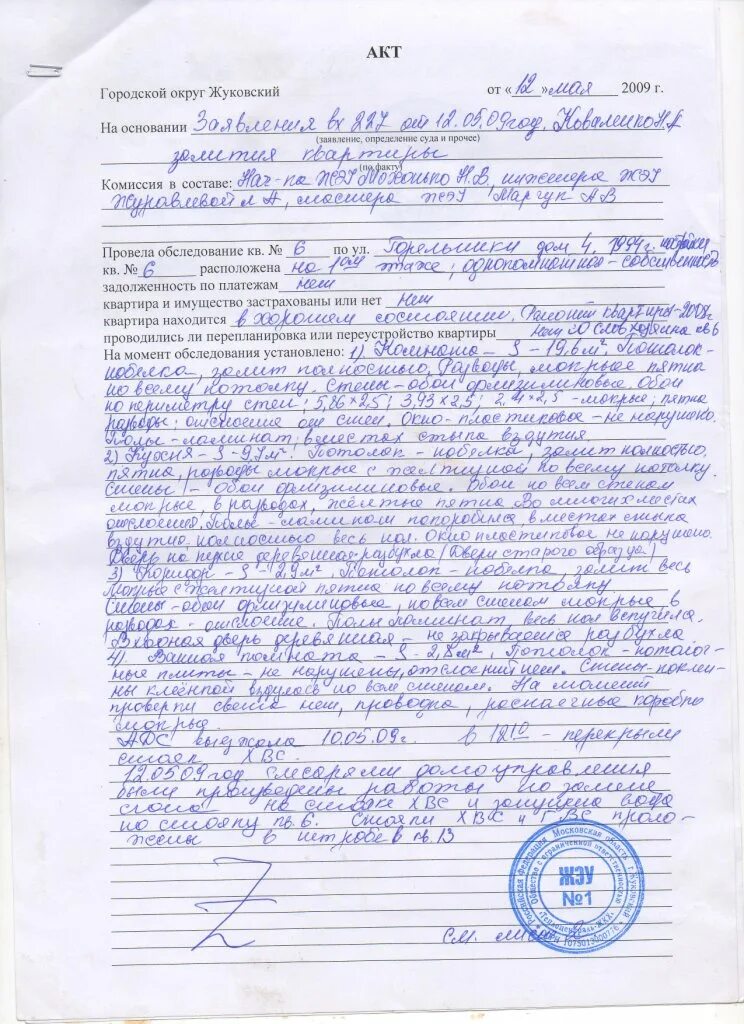 АКТ
Городской округ Жуковский от «12» мая 2009 г.
На основании Заявления вх 227 от 12.05.09год. Коваленко Н.А
(заявление, определение суда и прочее)
залития квартиры
(по факту)
Комиссия в составе: Нач-ка ЖЭУ Моханько Н.В, инженера ЖЭУ
Журавлевой Л А, мастера ЖЭУ Марчук А В
Провела обследование кв. № 6 по ул. Горельники дом 4, 1994г. постройки
кв. № 6 расположена на 1ом этаже, однокомнатная - собственность
задолженность по платежам нет
квартира и имущество застрахованы или нет нет
квартира находится в хорошем состоянии. Ремонт квартиры - 2008г
проводились ли перепланировка или переустройство квартиры нет со слов хозяина кв 6
На момент обследования установлено: 1) Комната - S - 19,6 м². Потолок -
побелка, залит полностью. Разводы, мокрые пятна
по всему потолку. Стены - обои флизилиновые. Обои
по периметру стен; 5,86×2,5; 3,93×2,5; 2,41×2,5 - мокрые; пятна
разводы; отслоение от стен. Окно - пластиковое - не нарушено.
Полы - ламинат; в местах стыка вздутия.
2) Кухня - S - 9,7м². Потолок - побелка, залит полностью,
пятна, разводы мокрые с желтизной по всему потолку.
Стены - обои флизилиновые. Обои по всем стенам
мокрые, в разводах, жёлтые пятна. Во многих местах
отслоения. Полы - ламинат покоробило, в местах стыка
вздутие полностью весь пол. Окно пластиковое не нарушено.
Дверь на кухне деревянная - разбухла (Двери старого образца)
3) Коридор - S - 2,9м². Потолок - побелка, залит весь
Мокрые с желтизной пятна по всему потолку
Стены - обои флизилиновые, по всем стенам мокрые в
разводах - отслоение. Полы ламинат, весь пол вспучило.
Входная дверь деревянная - не закрывается разбухла
4). Ванная комната - S - 2,8м². Потолок - потолоч-
ные плиты - не нарушены, отслоений нет. Стены - поклее-
ны клеёнкой вздулось по всем стенам. На момент
проверки света нет, проводка, распаечные коробки
мокрые.
АДС выезжала 10.05.09г. в 12 10 - перекрыли
стояк ХВС.
12.05.09год слесарями домоуправления
были произведены работы по замене
на стояке ХВС и запущена вода
по стояку кв. 6. Стояки ХВС и ГВС проло-
жены в штробе в кв. 13
См. лист 2
Российская Федерация Московская область г. Жуковский
Общество с ограниченной ответственностью
ЖЭУ
№1